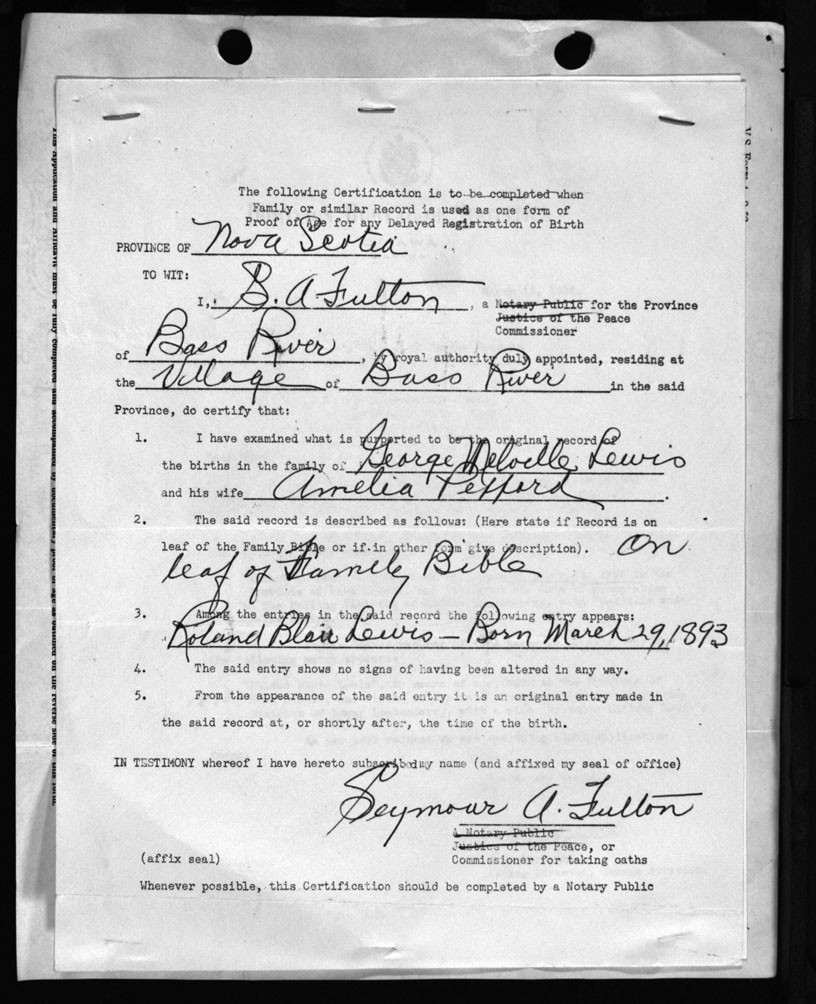 The following Certification is to be completed when
Family or similar Record is used as one form of
Proof of Age for any Delayed Registration of Birth
PROVINCE OF Nova Scotia
TO WIT:
I, S. A Fulton, a Notary Public for the Province
Justice of the Peace
Commissioner
of Bass River, by royal authority duly appointed, residing at
the Village of Bass River in the said
Province, do certify that:
1. I have examined what is purported to be the original record of
the births in the family of George Melville Lewis
and his wife Amelia Peppard.
2. The said record is described as follows: (Here state if Record is on
leaf of the Family Bible or if in other form give description). On
leaf of Family Bible
3. Among the entries in the said record the following entry appears:
Roland Blair Lewis — Born March 29, 1893
4. The said entry shows no signs of having been altered in any way.
5. From the appearance of the said entry it is an original entry made in
the said record at, or shortly after, the time of the birth.
IN TESTIMONY whereof I have hereto subscribed my name (and affixed my seal of office)
Seymour A. Fulton
A Notary Public
Justice of the Peace, or
(affix seal) Commissioner for taking oaths
Whenever possible, this Certification should be completed by a Notary Public